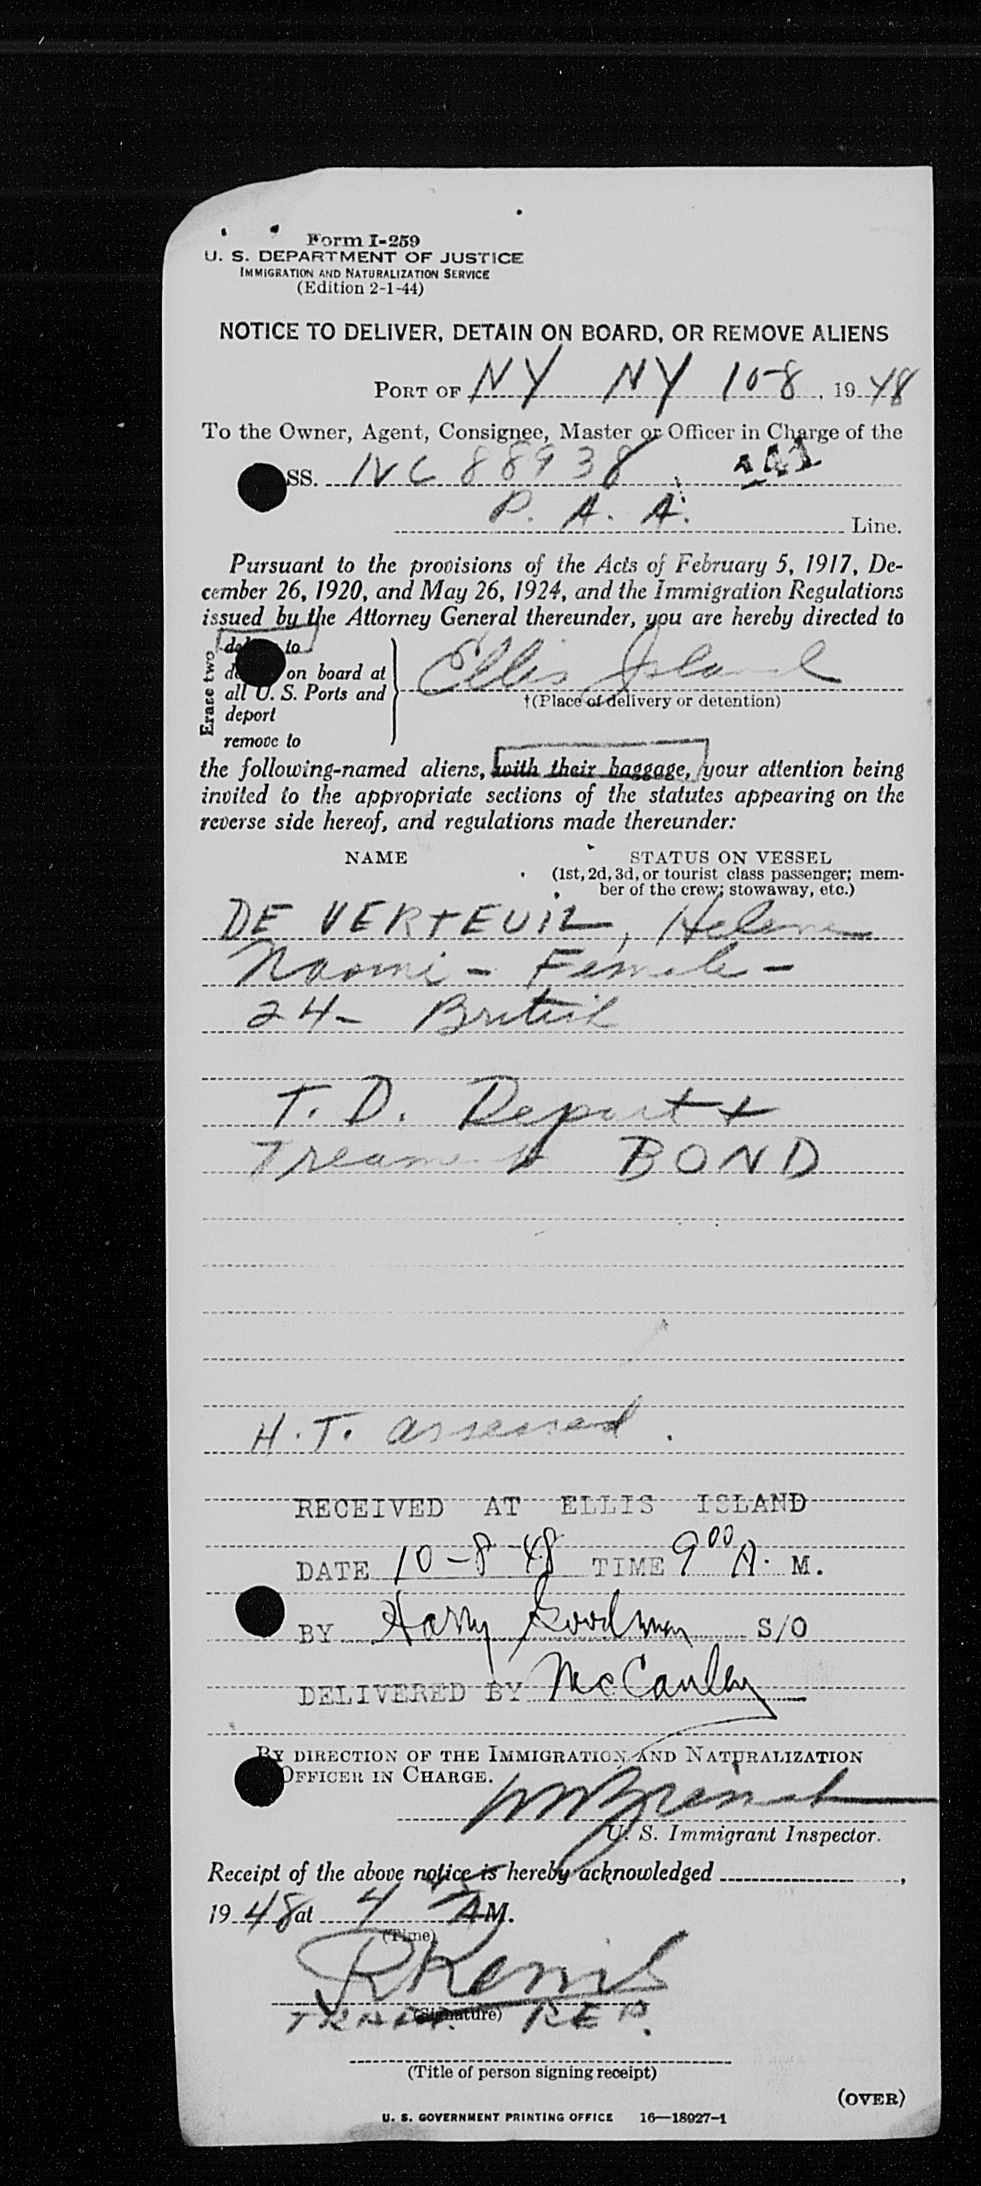 Form I-259
U. S. DEPARTMENT OF JUSTICE
IMMIGRATION AND NATURALIZATION SERVICE
(Edition 2-1-44)
NOTICE TO DELIVER, DETAIN ON BOARD, OR REMOVE ALIENS
PORT OF NY NY 10-8, 1948
To the Owner, Agent, Consignee, Master or Officer in Charge of the
SS. NC 88938
P. A. A. Line.
Pursuant to the provisions of the Acts of February 5, 1917, De-
cember 26, 1920, and May 26, 1924, and the Immigration Regulations
issued by the Attorney General thereunder, you are hereby directed to
Erase two
to
on board at
all U. S. Ports and
deport
remove to
Ellis Island
†(Place of delivery or detention)
the following-named aliens, with their baggage, your attention being
invited to the appropriate sections of the statutes appearing on the
reverse side hereof, and regulations made thereunder:
NAME STATUS ON VESSEL
(1st, 2d, 3d, or tourist class passenger; mem-
ber of the crew; stowaway, etc.)
DE VERTEUIL, Helene
Naomi - Female -
24 - British
T. D. Depart +
BOND
H. T. assessed.
RECEIVED AT ELLIS ISLAND
DATE 10-8-48 TIME 9 00 A. M.
BY Harry Goodman S/O
DELIVERED BY McCauley
BY DIRECTION OF THE IMMIGRATION AND NATURALIZATION
OFFICER IN CHARGE.
U. S. Immigrant Inspector.
Receipt of the above notice is hereby acknowledged ,
1948 at 4 AM.
(Time)
(Signature)
REP.
(Title of person signing receipt)
(OVER)
U. S. GOVERNMENT PRINTING OFFICE 16—18927-1